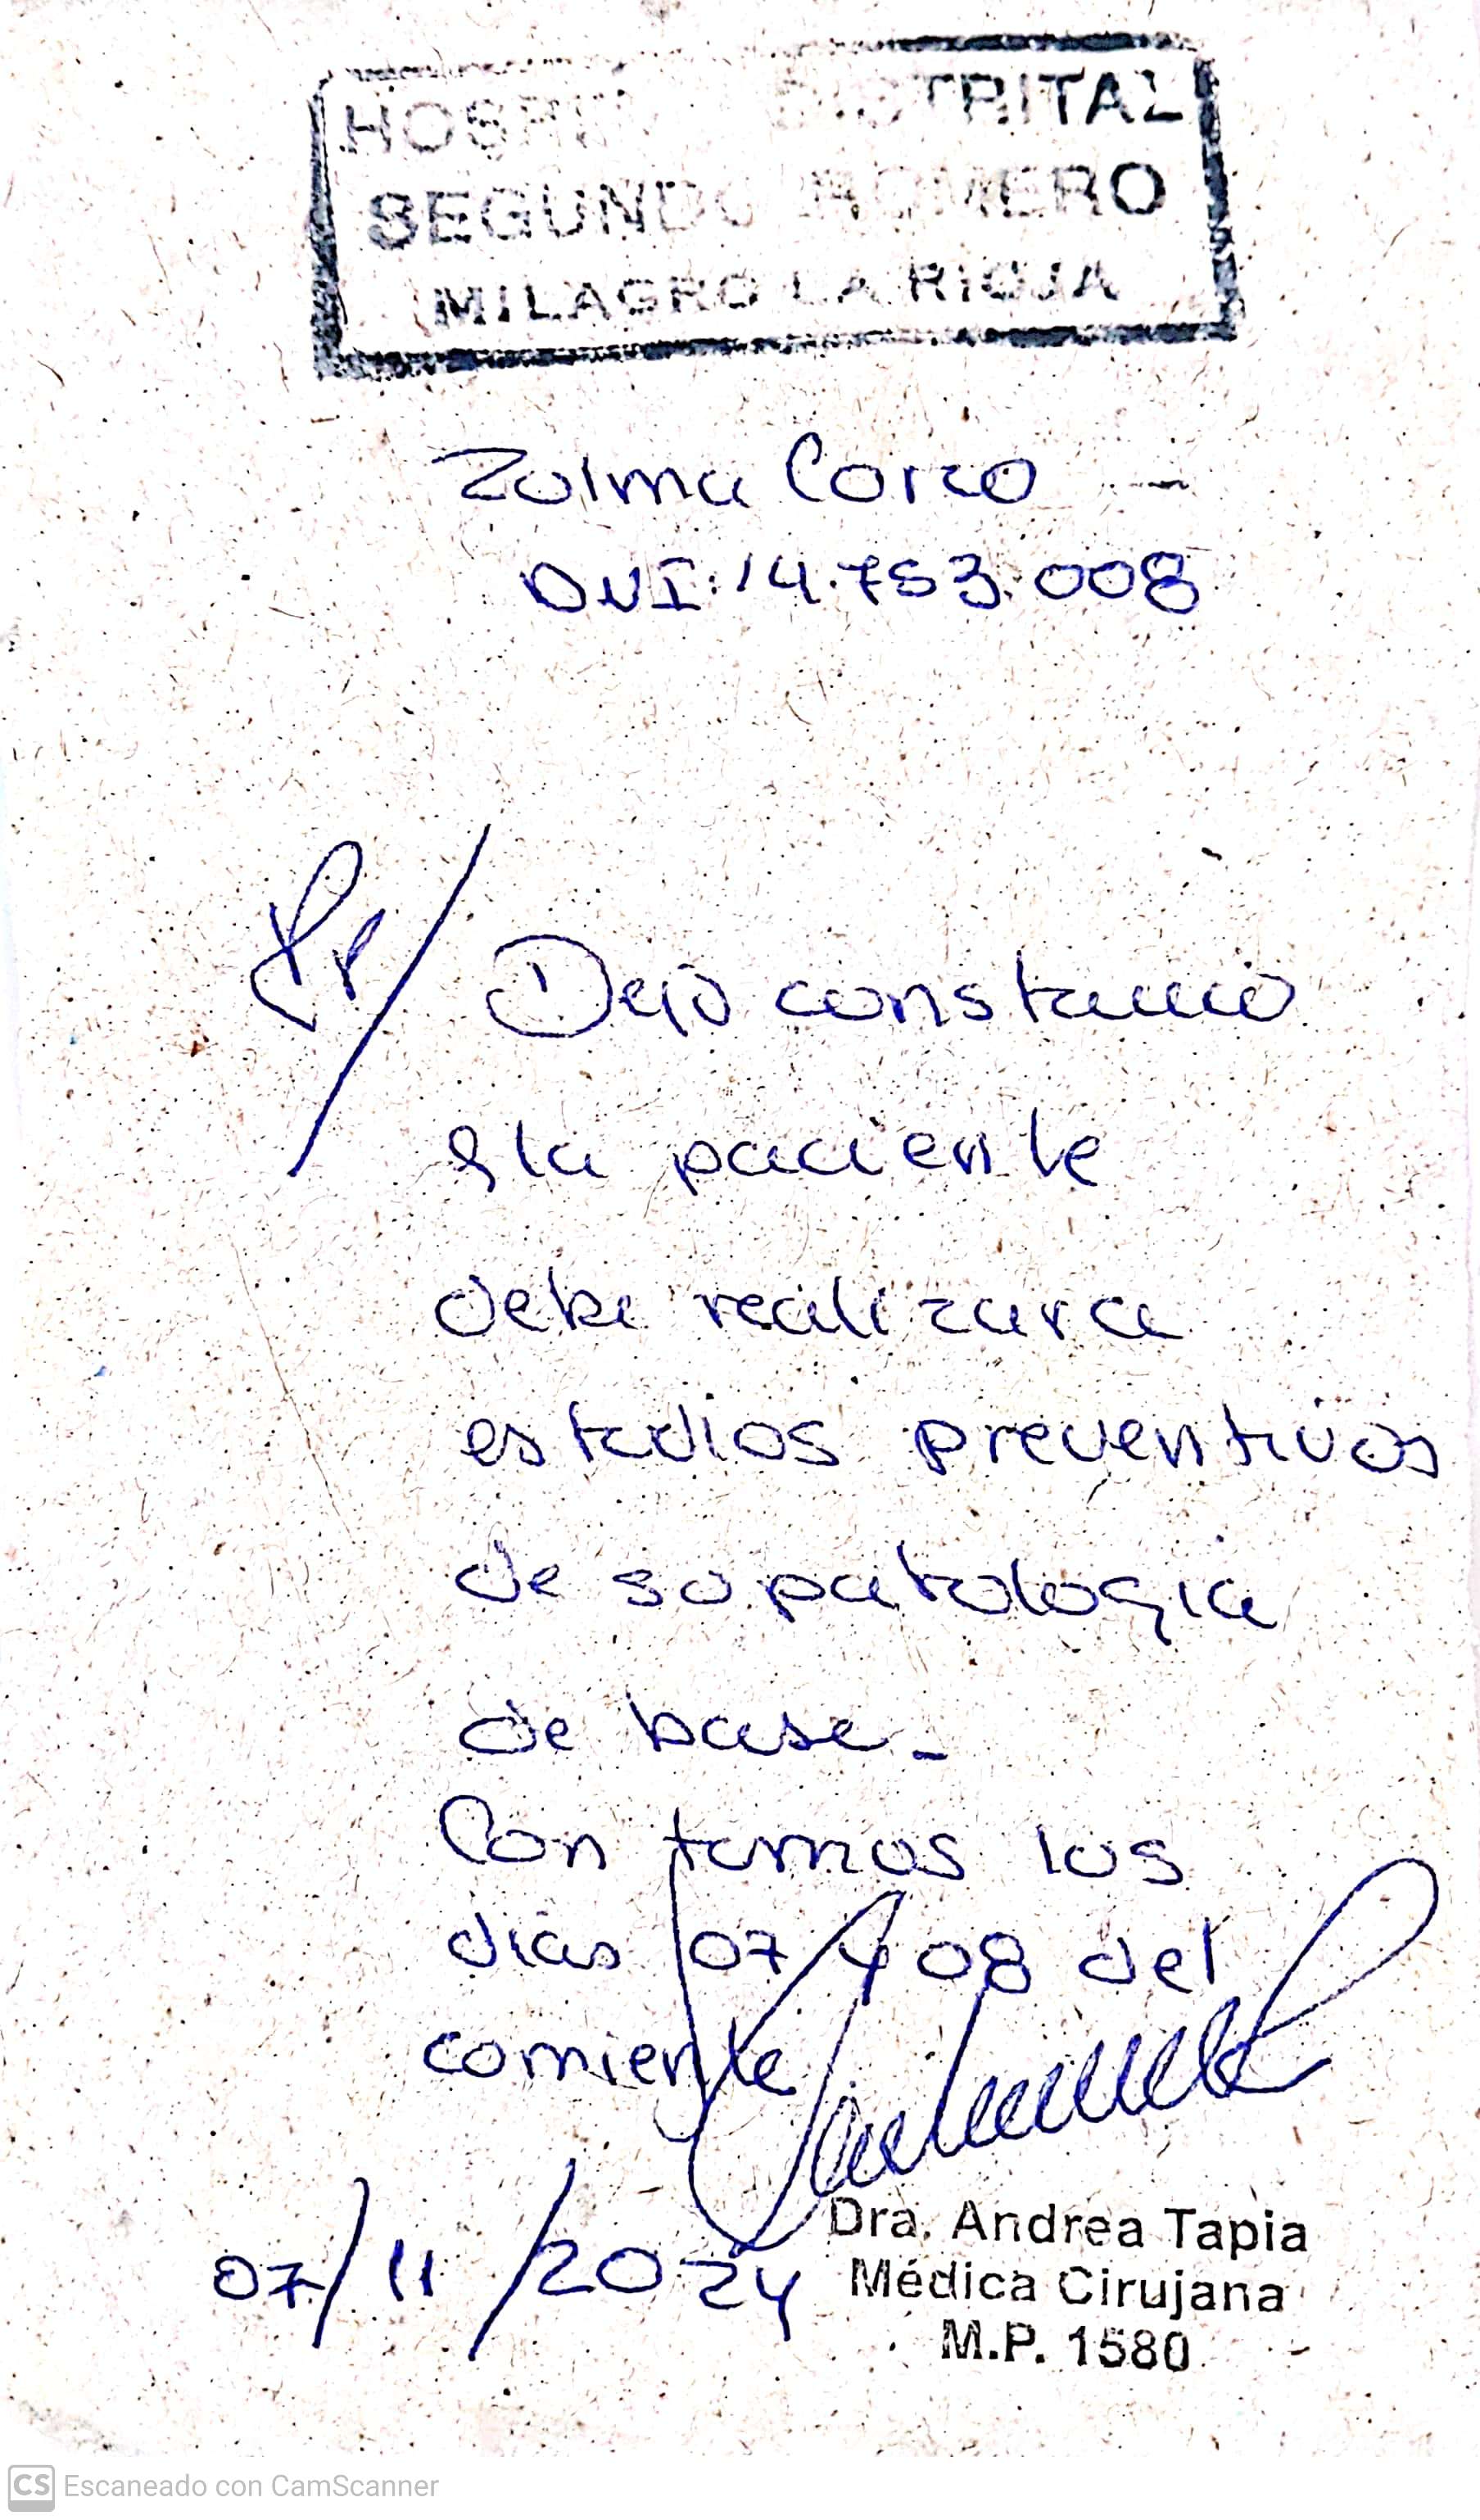 HOSPITAL DISTRITAL
SEGUNDO ROMERO
MILAGRO LA RIOJA
Zulma Corzo
DNI: 14.753.008
Rp/ Dejo constancia
q la paciente
debe realizarce
estudios preventivos
de su patologia
de base_
Con turnos los
dias 07 y 08 del
corriente
07/11/2024
Dra. Andrea Tapia
Médica Cirujana
M.P. 1580
CS Escaneado con CamScanner